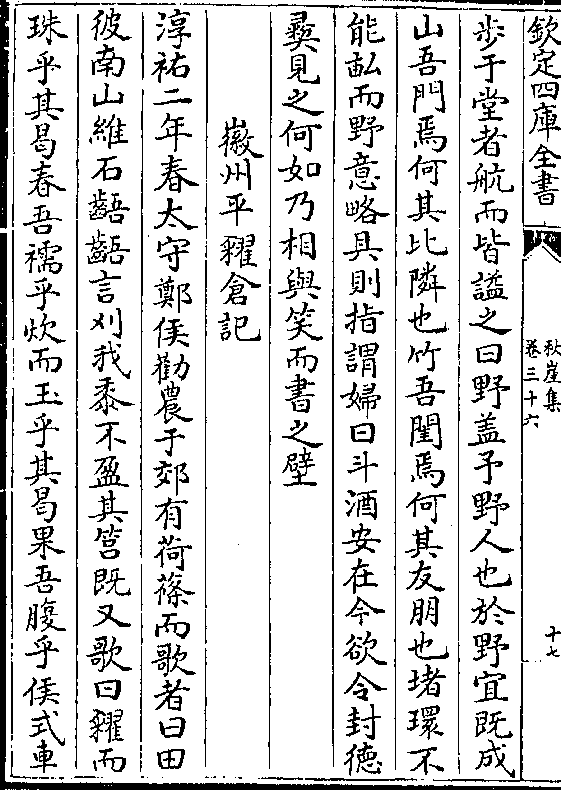 欽定四庫全書
秋崖集
卷三十六
十七
步于堂者航而皆謚之曰野盖予野人也於野宜既成
山吾門焉何其比隣也竹吾閨焉何其友朋也堵環不
能畝而野意略具則指謂婦曰斗酒安在今欲令封德
彛見之何如乃相與笑而書之壁
徽州平糴倉記
淳祐二年春太守鄭侯勸農于郊有荷蓧而歌者曰田
彼南山維石齬齬言刈我黍不盈其筥既又歌曰糴而
珠乎其曷舂吾襦乎炊而玉乎其曷果吾腹乎侯式車